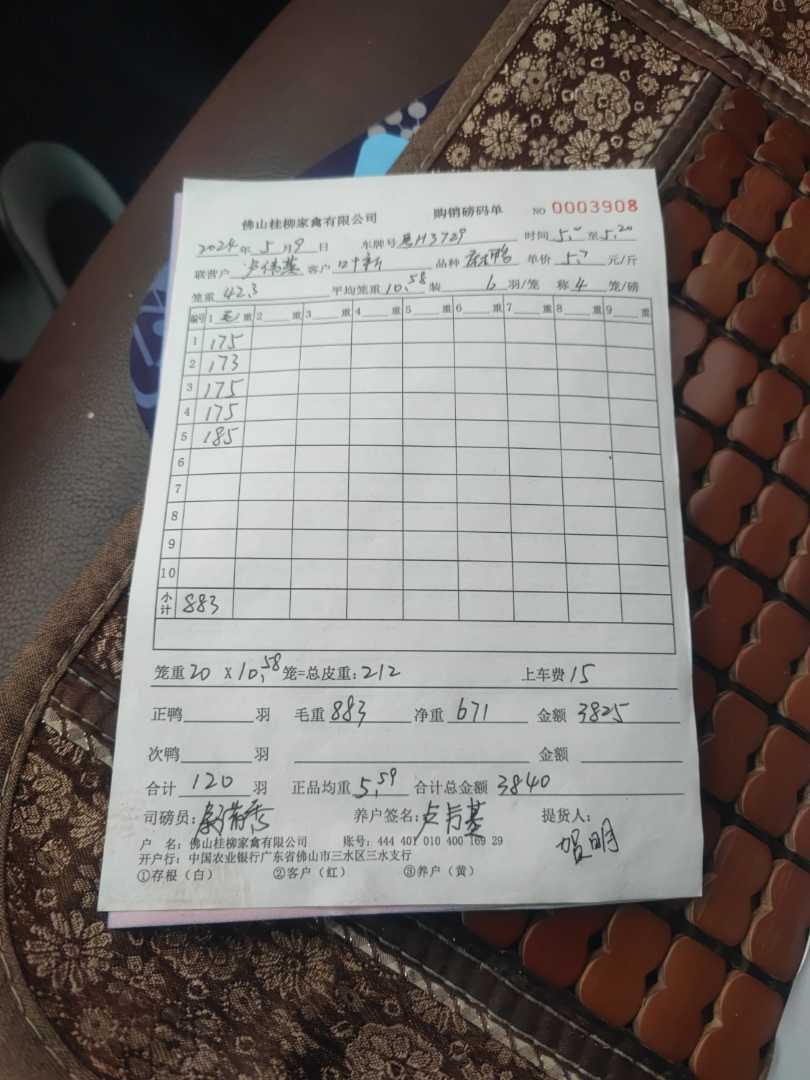 佛山桂柳家禽有限公司 购销磅码单 NO 0003908
2024年 5 月 9 日 车牌号 H3729 时间 5. 至 5.20
联营户 卢伟基 客户 叶新 品种 麻鸭 单价 5.7 元/斤
笼重 42.3 平均笼重 10.58 装 6 羽/笼 称 4 笼/磅
编号 1 毛/重 2 重 3 重 4 重 5 重 6 重 7 重 8 重 9 重
1 175
2 173
3 175
4 175
5 185
6
7
8
9
10
小计 883
笼重 20 X 10.58 笼=总皮重:212 上车费 15
正鸭 羽 毛重 883 净重 671 金额 3825
次鸭 羽 金额
合计 120 羽 正品均重 5.59 合计总金额 3840
司磅员: 养户签名:卢伟基 提货人:
贺明
户 名:佛山桂柳家禽有限公司 账号:444 401 010 400 169 29
开户行:中国农业银行广东省佛山市三水区三水支行
①存根(白) ②客户(红) ③养户(黄)